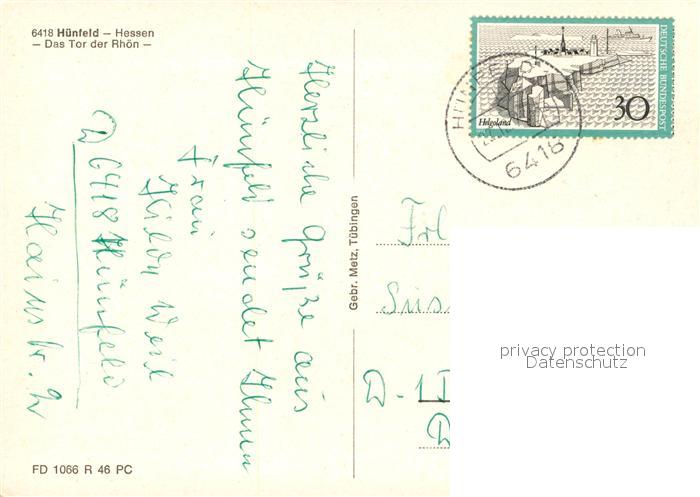 6418 Hünfeld – Hessen
– Das Tor der Rhön –
Herzliche Grüße aus
Hünfeld sendet Ihnen
Frau
Weil
6418 Hünfeld
FD 1066 R 46 PC
Gebr. Metz, Tübingen
DEUTSCHE BUNDESPOST
Helgoland
30
6418
Frl
Sus
D-1
privacy protection
Datenschutz